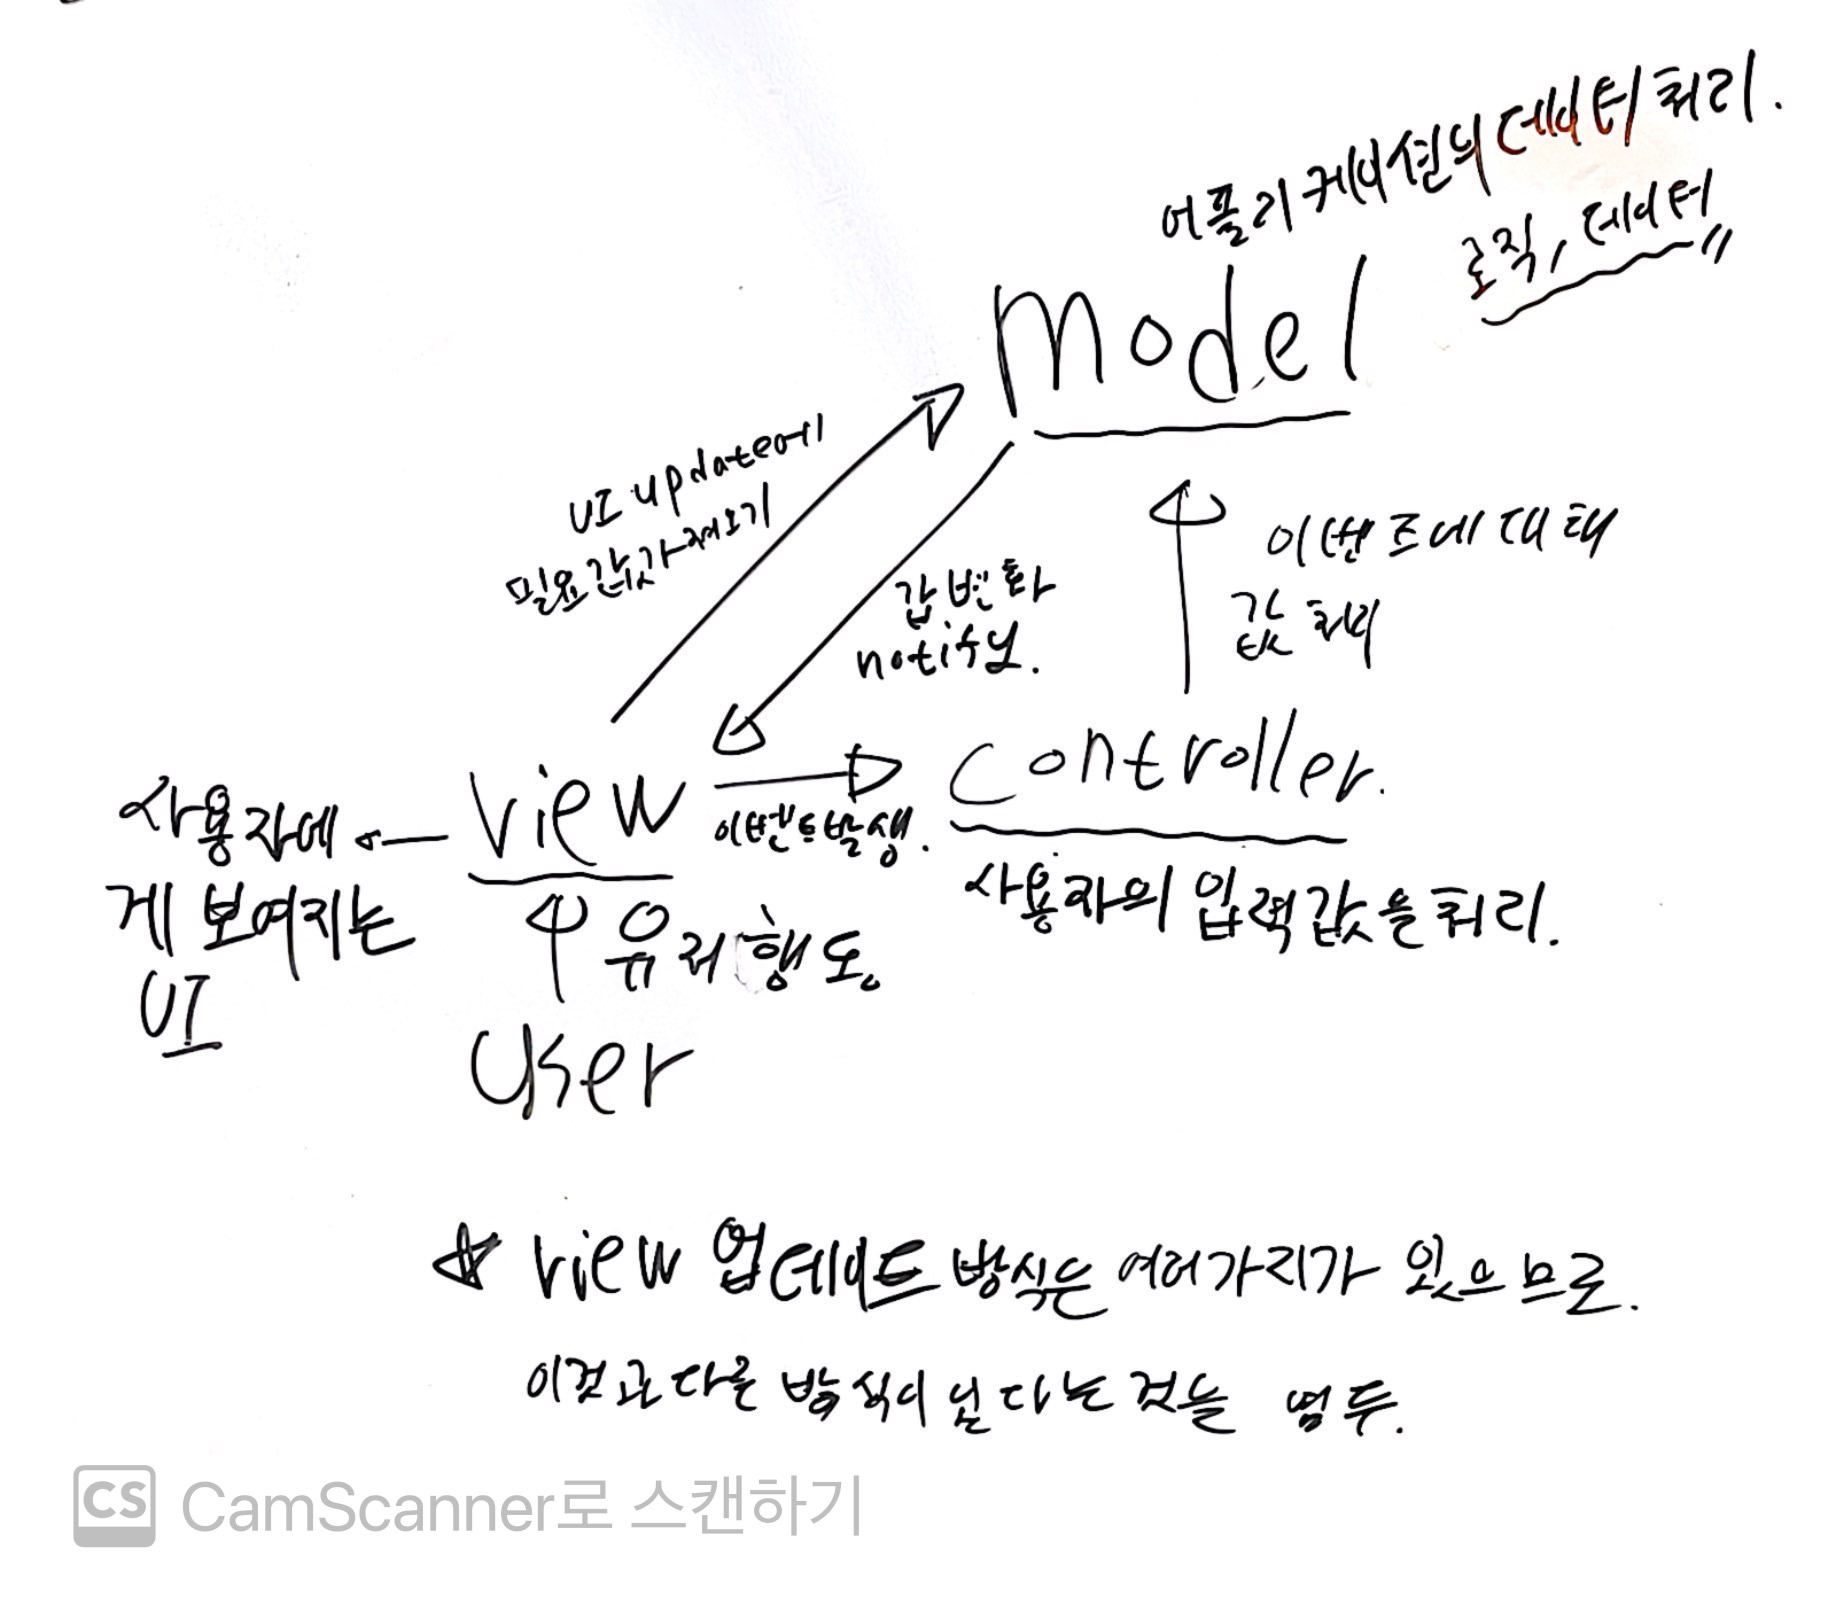 어플리케이션의 데이터 처리.
로직, 데이터
Model
UI update에
필요값 가져오기
값 변화
notify.
이벤트에 대해
값 처리
View
이벤트 발생.
Controller.
사용자의 입력값을 처리.
사용자에
게 보여지는
UI
유저 행동
User
☆ View 업데이트 방식은 여러가지가 있으므로.
이것과 다른 방식이 있다는 것을 염두.
CS CamScanner로 스캔하기